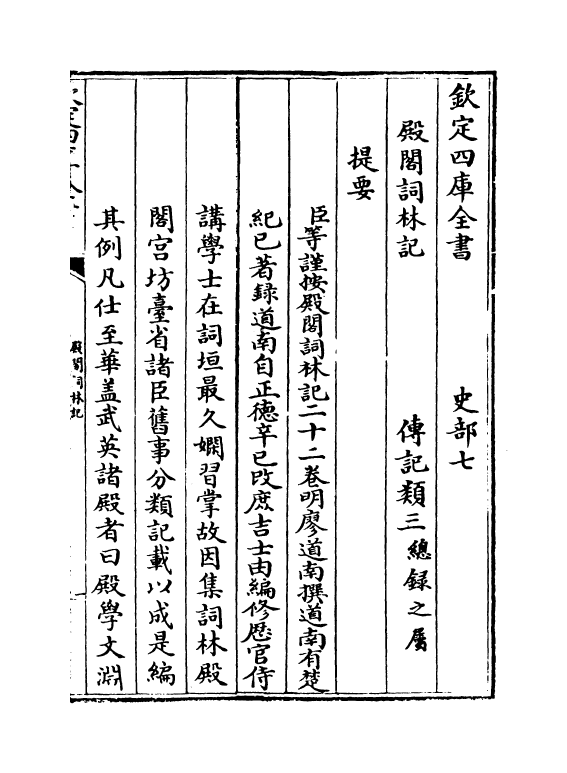 欽定四庫全書　史部七
殿閣詞林記　傳記類三總録之屬
提要
臣等謹按殿閣詞林記二十二卷明廖道南撰道南有楚
紀已著録道南自正德辛已改庶吉士由編修歴官侍
講學士在詞垣最久嫻習掌故因集詞林殿
閣宫坊臺省諸臣舊事分類記載以成是編
其例凡仕至華盖武英諸殿者曰殿學文淵
殿閣詞林記